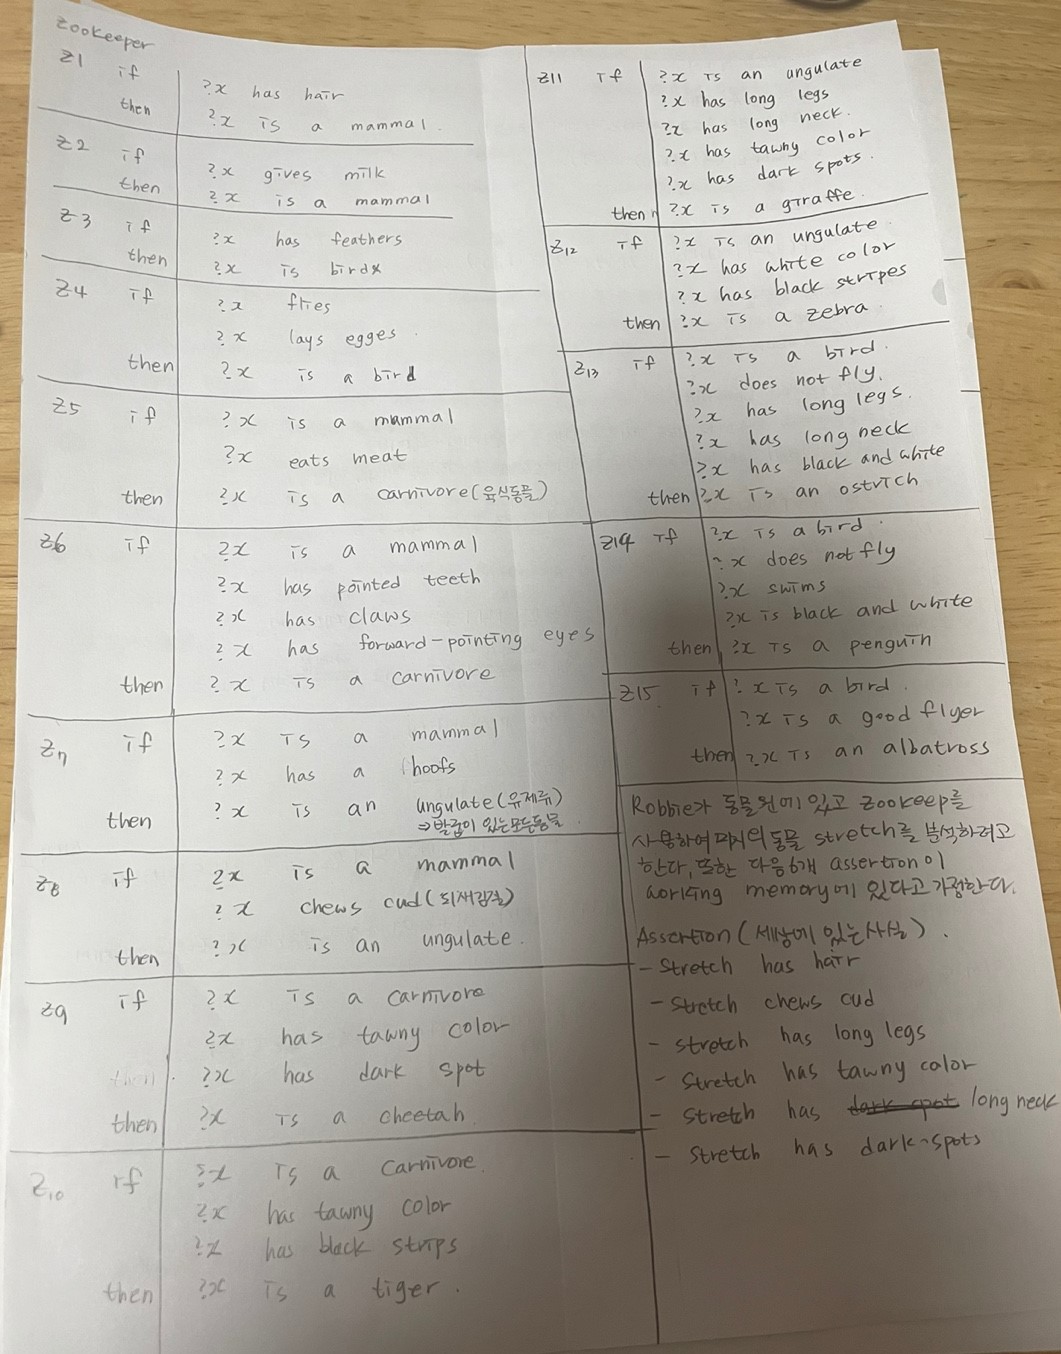 zookeeper
Z1 if ?x has hair
then ?x is a mammal.
Z2 if ?x gives milk
then ?x is a mammal
Z3 if ?x has feathers
then ?x is bird
Z4 if ?x flies
?x lays egges.
then ?x is a bird
Z5 if ?x is a mammal
?x eats meat
then ?x is a carnivore(육식동물)
Z6 if ?x is a mammal
?x has pointed teeth
?x has claws
?x has forward-pointing eyes
then ?x is a carnivore
Z7 if ?x is a mammal
?x has a hoofs
then ?x is an ungulate(유제류)
⇒발굽이 있는모든동물
Z8 if ?x is a mammal
?x chews cud(되새김질)
then ?x is an ungulate.
Z9 if ?x is a carnivore
?x has tawny color
then ?x has dark spot
then ?x is a cheetah
Z10 if ?x is a carnivore.
?x has tawny color
?x has black strips
then ?x is a tiger.
Z11 if ?x is an ungulate
?x has long legs
?x has long neck.
?x has tawny color
?x has dark spots.
then ?x is a giraffe.
Z12 if ?x is an ungulate.
?x has white color
?x has black stripes
then ?x is a zebra.
Z13 if ?x is a bird.
?x does not fly.
?x has long legs.
?x has long neck
?x has black and white
then ?x is an ostrich
Z14 if ?x is a bird.
?x does not fly
?x swims
?x is black and white
then ?x is a penguin
Z15 if ?x is a bird.
?x is a good flyer
then ?x is an albatross
Robbie가 동물원에 있고 zookeep를
사용하여 동물 stretch를 분석하려고
한다, 또한 다음 6개 assertion이
working memory에 있다고 가정한다.
Assertion(세상에 있는사실).
- Stretch has hair
- Stretch chews cud
- stretch has long legs
- Stretch has tawny calor
- Stretch has dark spot long neck
- Stretch has dark-spots